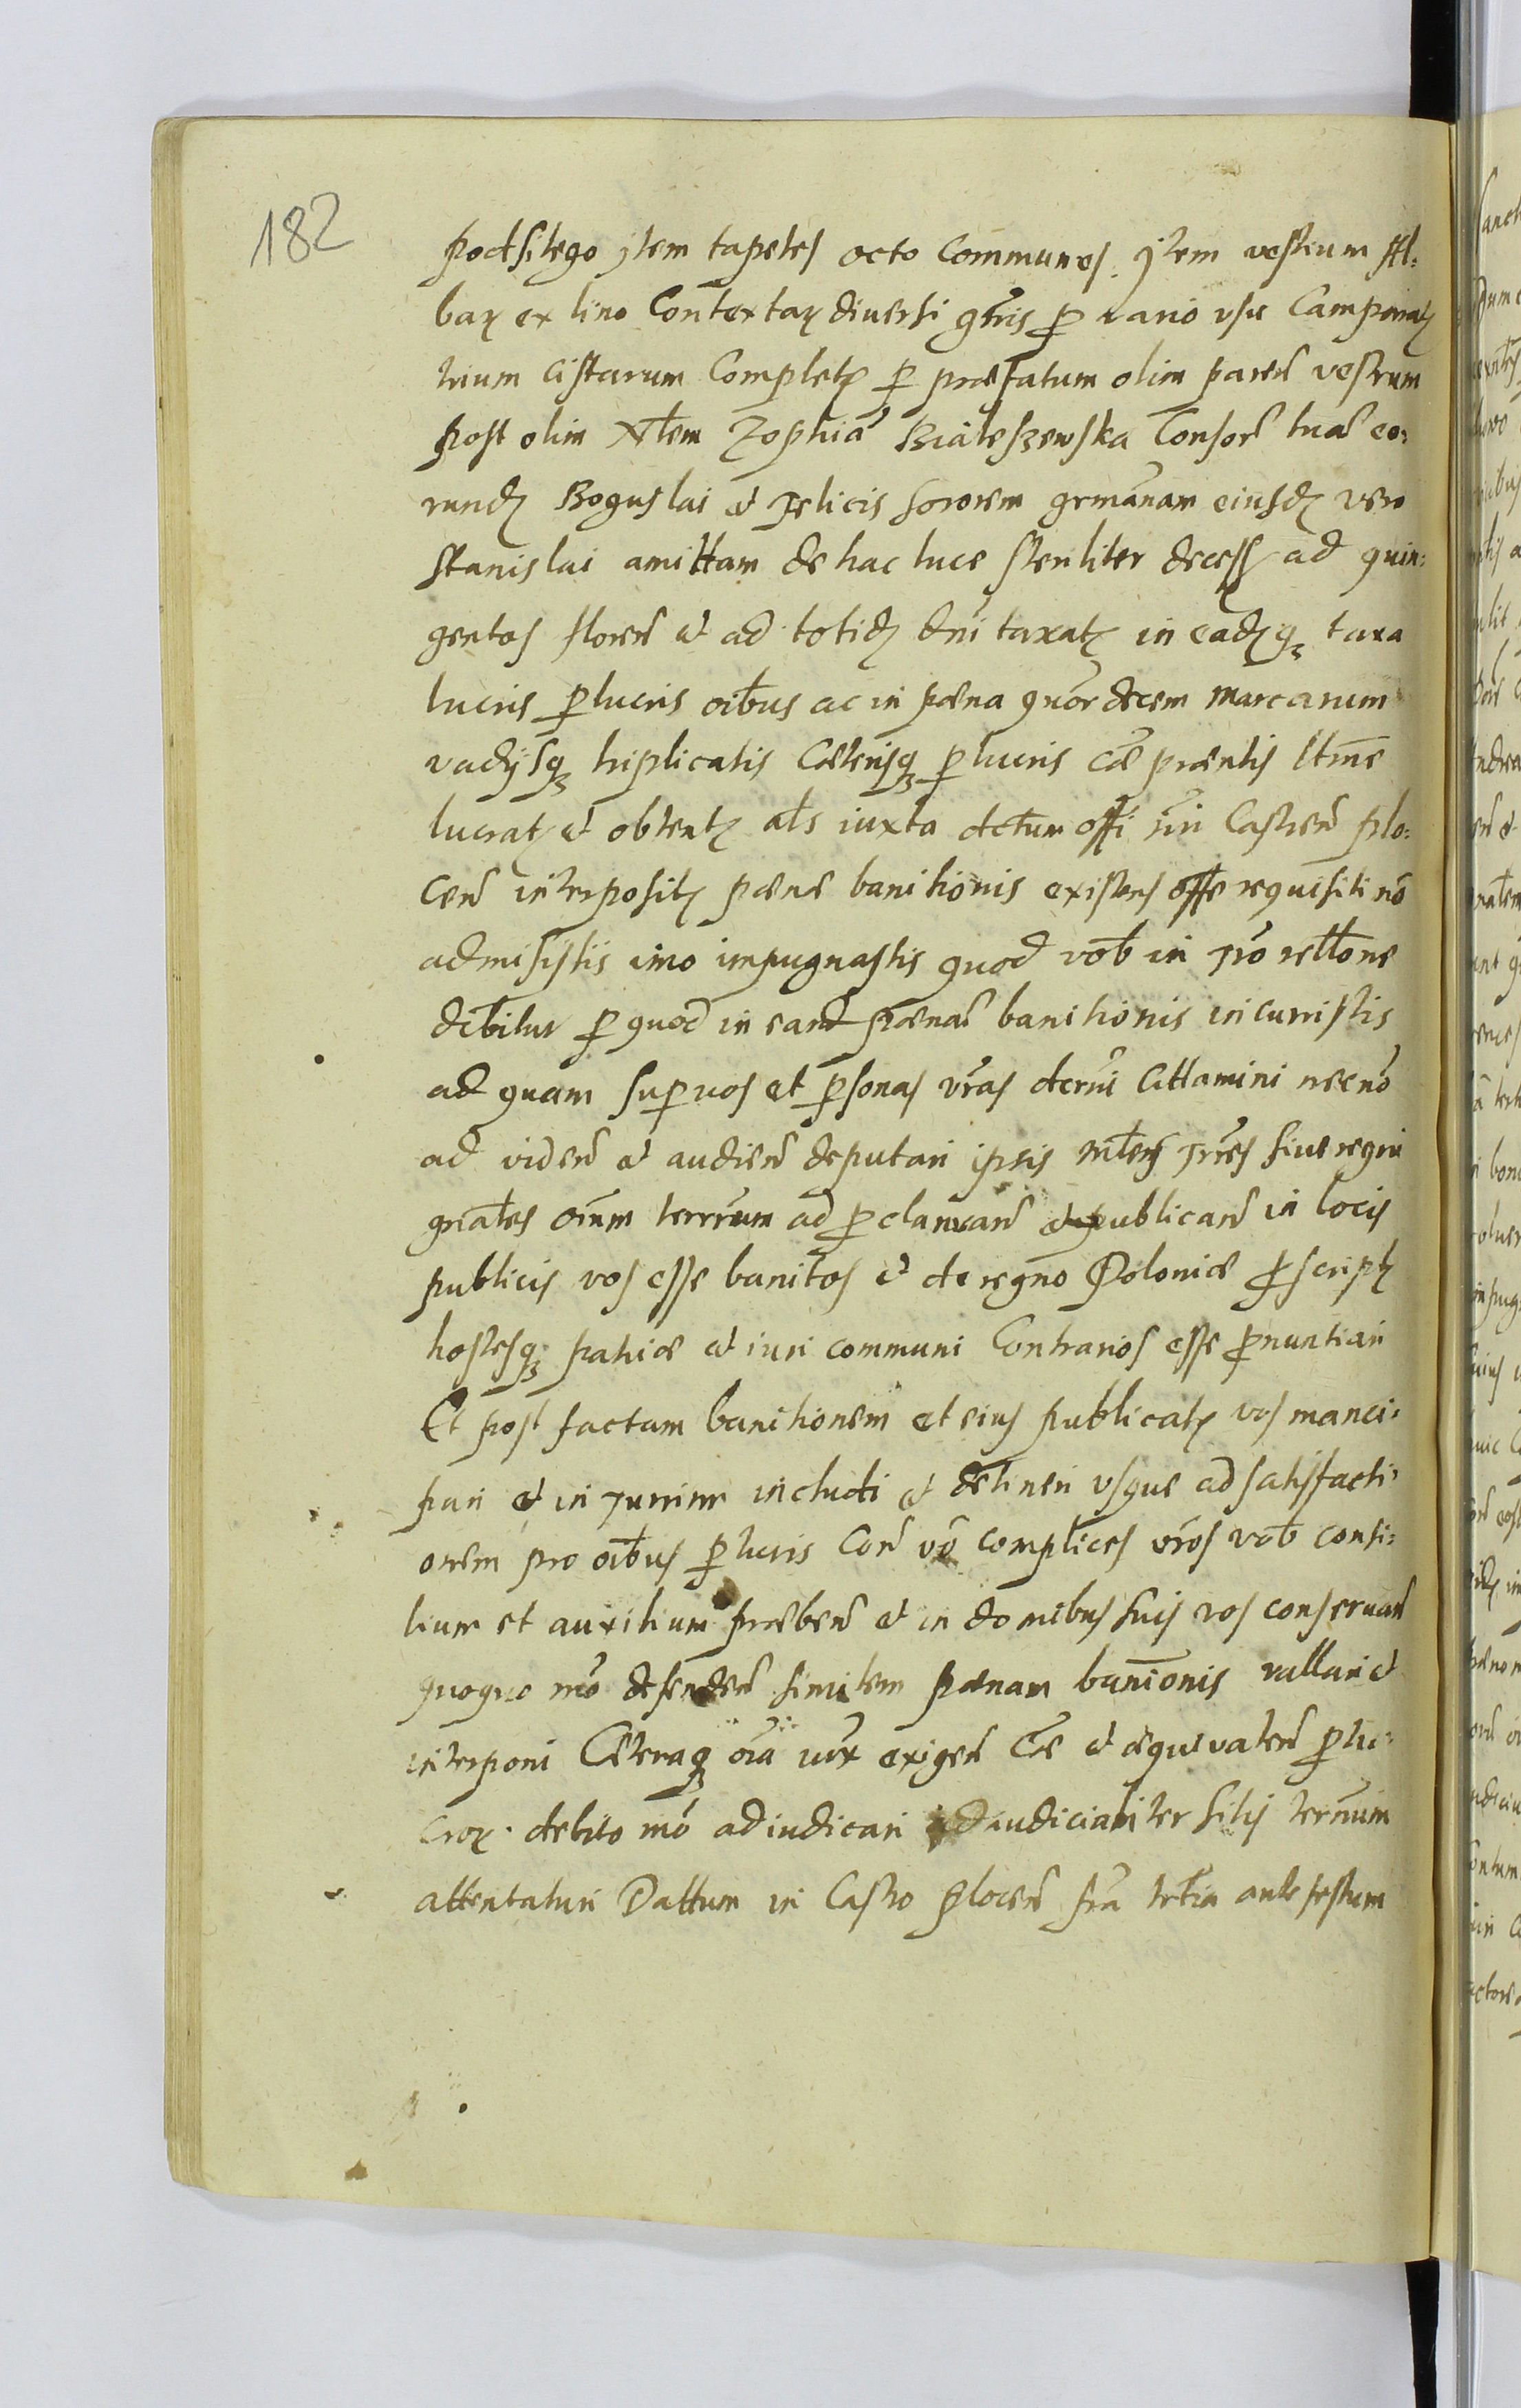 182
podsitego ytem tapetes octo Communes. ytem vestium Al:
baꝝ ex lino Contextaꝝ diuersi gñis ꝑ vario vsu Camporaꝝ
trium Cistarum Completꝝ ꝑ præfatum olim pareñ vestrum
post olim Nłem Zophiã Bialeszewska Consorẽ tuã eo:
rundꝫ Boguslai et Felicis sororem germãnam eiusdꝫ vero
Stanislai amittam de hac luce steriliter decessꝫ ad quin:
gentos floreñ et ad totidꝫ dñi taxatꝫ in eadꝫqꝫ taxa
lucris ꝑlucris oĩbus ac in pæna quõrdecem marcarum
vadysqꝫ triplicatis Cæterisqꝫ ꝑlucris cæ præntis ltme
lucratꝫ et obtentꝫ ałs iuxta dctum offi rñi Castreñ plo:
ceñ interpositꝫ pænæ banitionis existens offe requisiti nõ
admisistis imo impugnastis quod vob in Trõ rełłone
dicbitur ꝑ quod in eand pænaẽ banitionis incurristis
ad quam super vos et ꝑsonas vr̃as decr̃ni Attamini necnõ
ad videñ et audieñ deputari ipsis Młeri Tr̃res siue regni
gñałes oĩum terrarum ad ꝓclamañ et publicañ in locis
publicis vos esse banitos et de regno Poloniæ ꝓscriptꝫ
hostesqꝫ patriæ et iuri communi Contrarios esse ꝓnuntiari
Et post factam banitionem et eius publicatꝫ vos manci:
pari et in Turrim includi et detineri vsque ad satisfacti:
onem pro oĩbus ꝑlucris Coñ võ complices vr̃os vob consi:
lium et auxilium præbeñ et in domibus suis vos conseruañ
quoquo mõ defendeñ similem pænam banionis vallari et
interponi Cæteraqꝫ oĩa iux exigeñ Cæ et æquivaleñ ꝑlu:
croꝝ debito mõ adiudicari iudicialiter sitis terminum
attentaturi Dattum in Castro Ploceñ fr̃a tertia ante festum